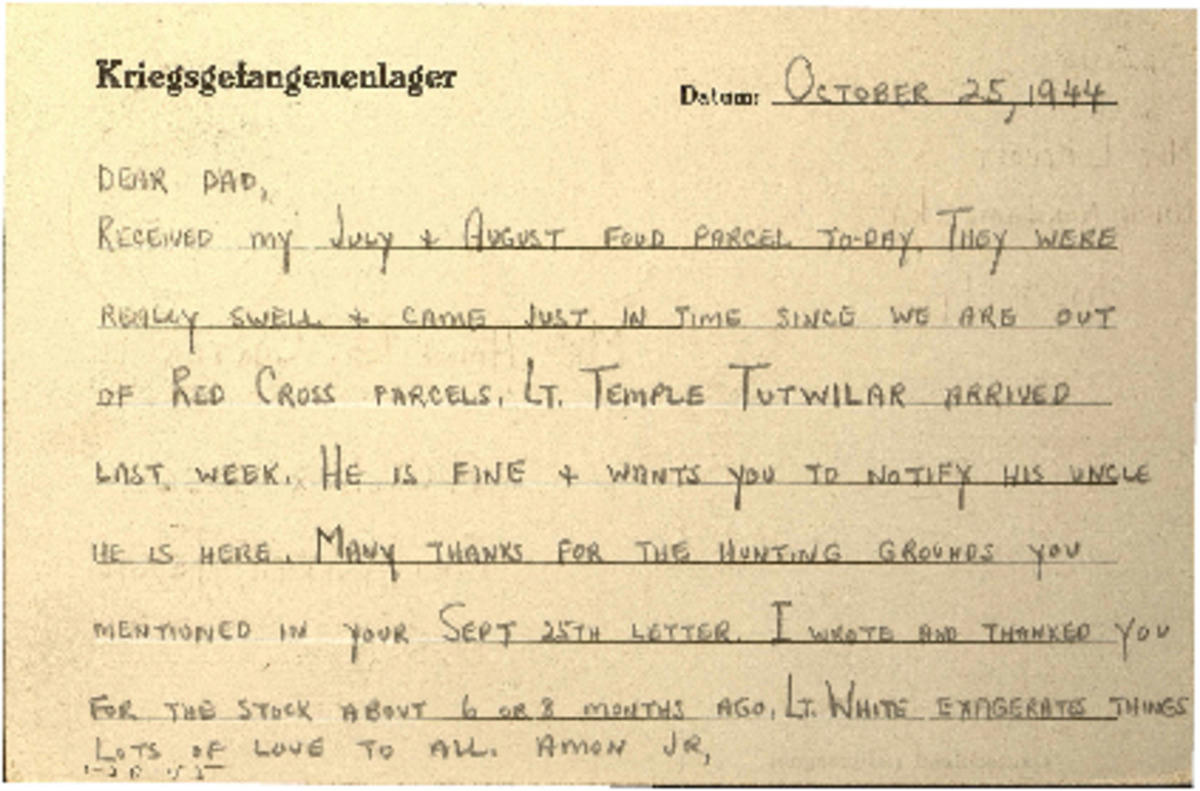 Kriegsgefangenenlager
Datum: OCTOBER 25, 1944
DEAR DAD,
RECEIVED MY JULY + AUGUST FOOD PARCEL TO-DAY. THEY WERE
REALLY SWELL + CAME JUST IN TIME SINCE WE ARE OUT
OF RED CROSS PARCELS. LT. TEMPLE TUTWILAR ARRIVED
LAST WEEK. HE IS FINE + WANTS YOU TO NOTIFY HIS UNCLE
HE IS HERE. MANY THANKS FOR THE HUNTING GROUNDS YOU
MENTIONED IN YOUR SEPT 25TH LETTER. I WROTE AND THANKED YOU
FOR THE STOCK ABOUT 6 OR 8 MONTHS AGO. LT. WHITE EXAGERATES THINGS
LOTS OF LOVE TO ALL. AMON JR,